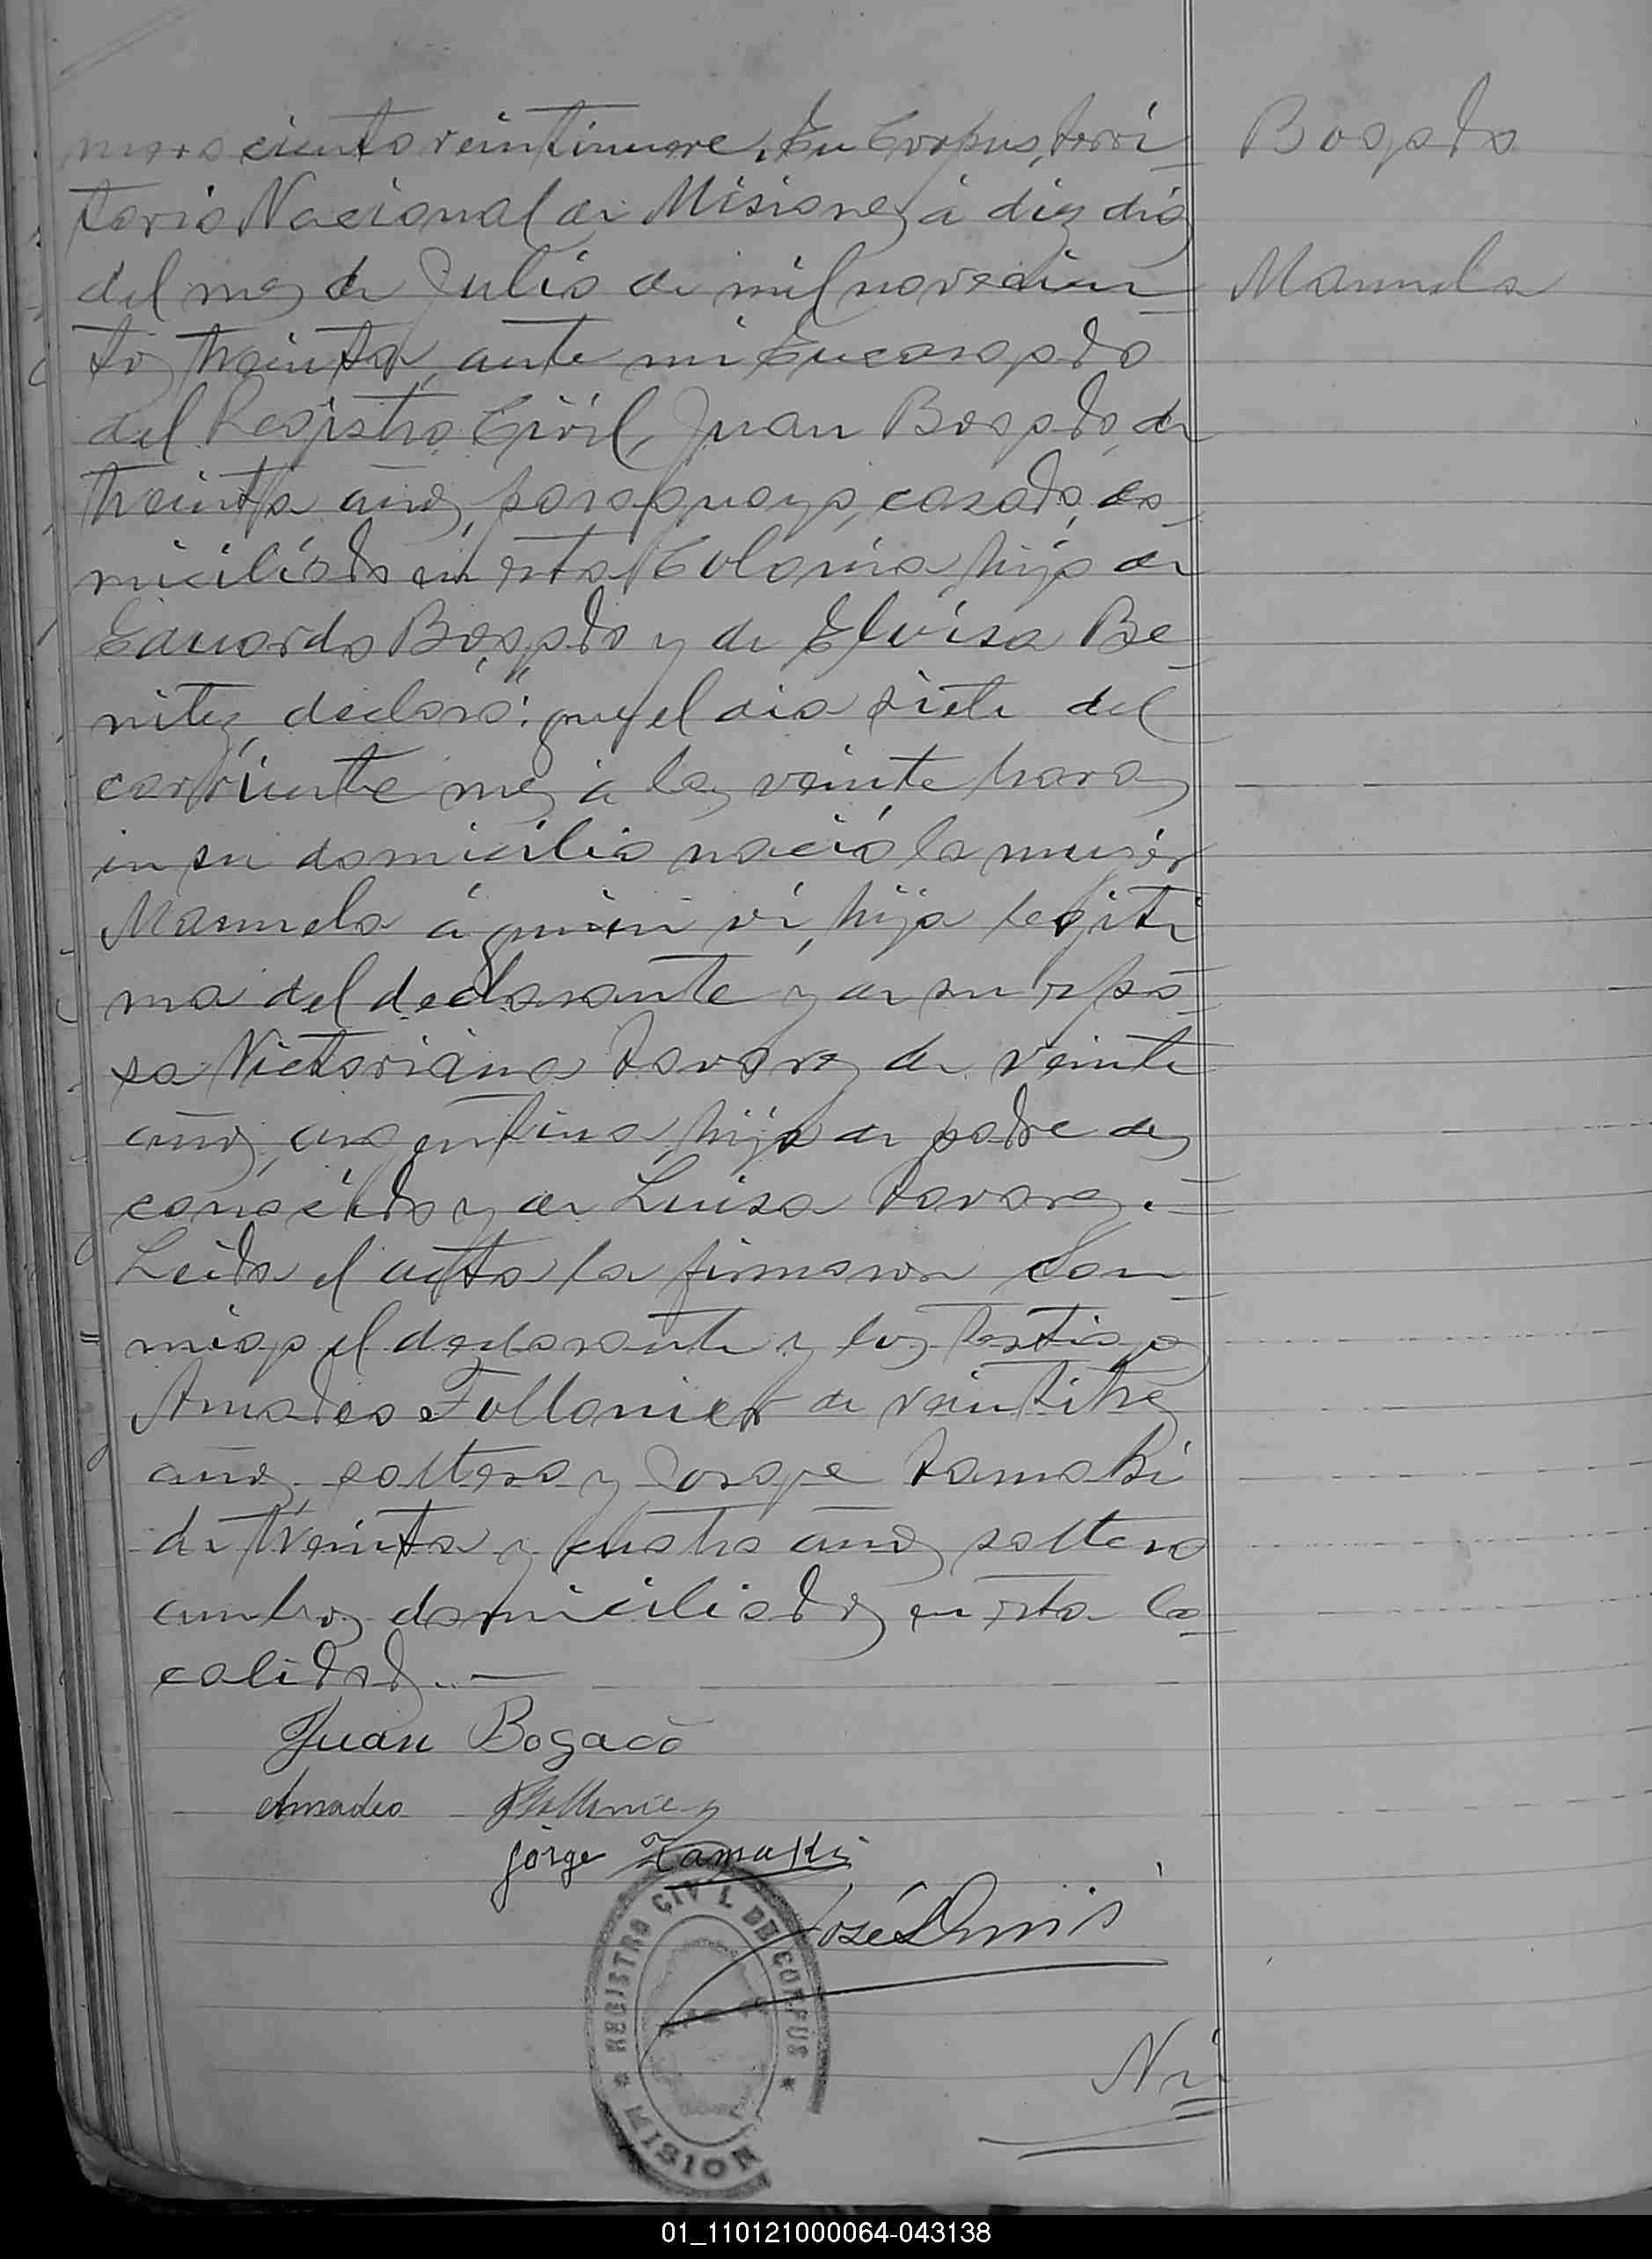 mero ciento veintinueve. En Corpus, terri-
torio Nacional de Misiones, á diez dias
del mes de Julio de mil novecien-
tos treinta, ante mi Encargado
del Registro Civil, Juan Bogado, de
treinta años, paraguayo, casado, do-
miciliado en esta Colonia, hijo de
Eduardo Bogado y de Eloisa Be-
nitez, declaró: que el dia siete del
corriente mes á las veinte horas
en su domicilio nació la mujer
Manuela á quien ví, hija legiti
ma del declarante y de su espo-
sa Victoriana Tavarez de veinte
años, argentina, hija de padre des
conocido y de Luisa Tavarez.=
Leida el acta la firmaron con-
migo el declarante y los testigos
Amadeo Follonier de veintitres
años, soltero y Jorge Tamaki
de treinta y cuatro años, soltero
ambos domiciliados en esta lo-
calidad.—
Bogado
Manuela
Juan Bogado
Amadeo Follonier
Jorge Tamaki
José
REGISTRO CIVIL DE CORPUS
* MISION *
Nú=
01_110121000064-043138